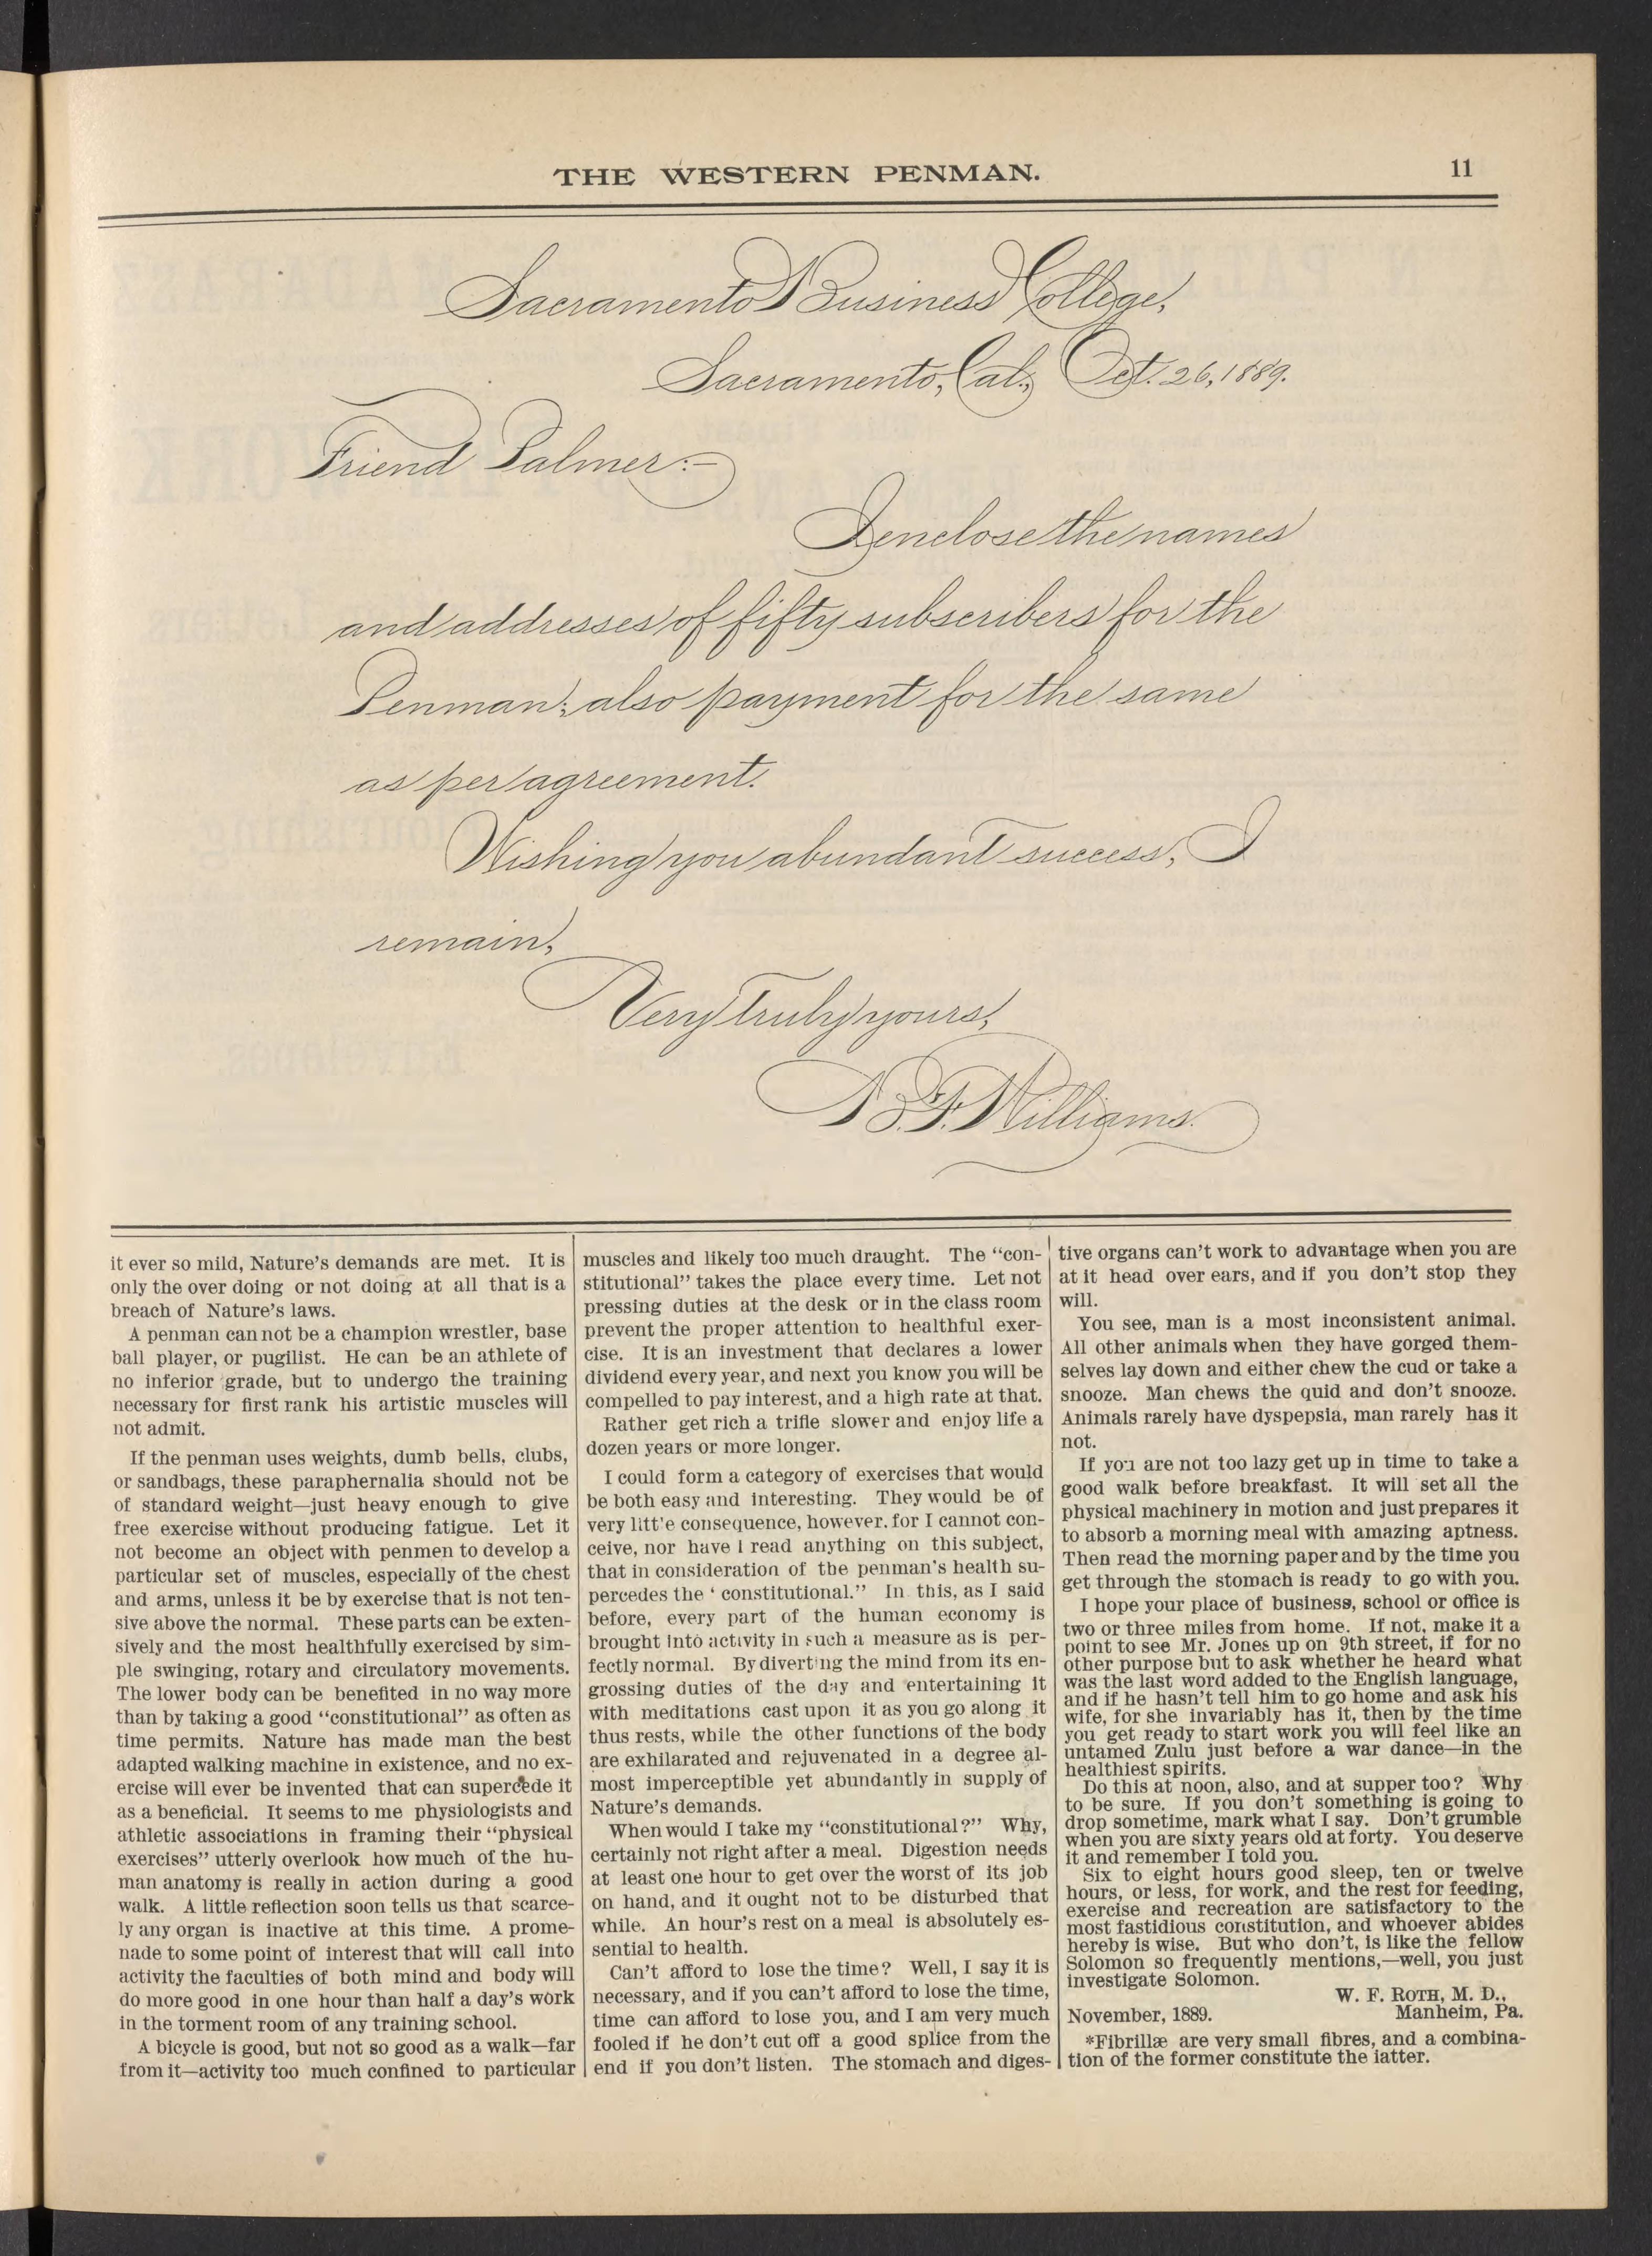 THE WESTERN PENMAN.
11
Sacramento Business College,
Sacramento, Cal., Oct. 26, 1889.
Friend Palmer:-
I enclose the names
and addresses of fifty subscribers for the
Penman; also payment for the same
as per agreement.
Wishing you abundant success, I
remain,
Very truly yours,
B.F. Williams.
it ever so mild, Nature's demands are met. It is
only the over doing or not doing at all that is a
breach of Nature's laws.
A penman can not be a champion wrestler, base
ball player, or pugilist. He can be an athlete of
no inferior grade, but to undergo the training
necessary for first rank his artistic muscles will
not admit.
If the penman uses weights, dumb bells, clubs,
or sandbags, these paraphernalia should not be
of standard weight—just heavy enough to give
free exercise without producing fatigue. Let it
not become an object with penmen to develop a
particular set of muscles, especially of the chest
and arms, unless it be by exercise that is not ten-
sive above the normal. These parts can be exten-
sively and the most healthfully exercised by sim-
ple swinging, rotary and circulatory movements.
The lower body can be benefited in no way more
than by taking a good "constitutional" as often as
time permits. Nature has made man the best
adapted walking machine in existence, and no ex-
ercise will ever be invented that can supercede it
as a beneficial. It seems to me physiologists and
athletic associations in framing their "physical
exercises" utterly overlook how much of the hu-
man anatomy is really in action during a good
walk. A little reflection soon tells us that scarce-
ly any organ is inactive at this time. A prome-
nade to some point of interest that will call into
activity the faculties of both mind and body will
do more good in one hour than half a day's work
in the torment room of any training school.
A bicycle is good, but not so good as a walk—far
from it—activity too much confined to particular
muscles and likely too much draught. The "con-
stitutional" takes the place every time. Let not
pressing duties at the desk or in the class room
prevent the proper attention to healthful exer-
cise. It is an investment that declares a lower
dividend every year, and next you know you will be
compelled to pay interest, and a high rate at that.
Rather get rich a trifle slower and enjoy life a
dozen years or more longer.
I could form a category of exercises that would
be both easy and interesting. They would be of
very litt'e consequence, however. for I cannot con-
ceive, nor have I read anything on this subject,
that in consideration of the penman's health su-
percedes the ' constitutional." In this, as I said
before, every part of the human economy is
brought into activity in such a measure as is per-
fectly normal. By diverting the mind from its en-
grossing duties of the day and entertaining it
with meditations cast upon it as you go along it
thus rests, while the other functions of the body
are exhilarated and rejuvenated in a degree al-
most imperceptible yet abundantly in supply of
Nature's demands.
When would I take my "constitutional?" Why,
certainly not right after a meal. Digestion needs
at least one hour to get over the worst of its job
on hand, and it ought not to be disturbed that
while. An hour's rest on a meal is absolutely es-
sential to health.
Can't afford to lose the time? Well, I say it is
necessary, and if you can't afford to lose the time,
time can afford to lose you, and I am very much
fooled if he don't cut off a good splice from the
end if you don't listen. The stomach and diges-
tive organs can't work to advantage when you are
at it head over ears, and if you don't stop they
will.
You see, man is a most inconsistent animal.
All other animals when they have gorged them-
selves lay down and either chew the cud or take a
snooze. Man chews the quid and don't snooze.
Animals rarely have dyspepsia, man rarely has it
not.
If you are not too lazy get up in time to take a
good walk before breakfast. It will set all the
physical machinery in motion and just prepares it
to absorb a morning meal with amazing aptness.
Then read the morning paper and by the time you
get through the stomach is ready to go with you.
I hope your place of business, school or office is
two or three miles from home. If not, make it a
point to see Mr. Jones up on 9th street, if for no
other purpose but to ask whether he heard what
was the last word added to the English language,
and if he hasn't tell him to go home and ask his
wife, for she invariably has it, then by the time
you get ready to start work you will feel like an
untamed Zulu just before a war dance—in the
healthiest spirits.
Do this at noon, also, and at supper too? Why
to be sure. If you don't something is going to
drop sometime, mark what I say. Don't grumble
when you are sixty years old at forty. You deserve
it and remember I told you.
Six to eight hours good sleep, ten or twelve
hours, or less, for work, and the rest for feeding,
exercise and recreation are satisfactory to the
most fastidious constitution, and whoever abides
hereby is wise. But who don't, is like the fellow
Solomon so frequently mentions,—well, you just
investigate Solomon.
W. F. ROTH, M. D.,
November, 1889. Manheim, Pa.
*Fibrillæ are very small fibres, and a combina-
tion of the former constitute the latter.